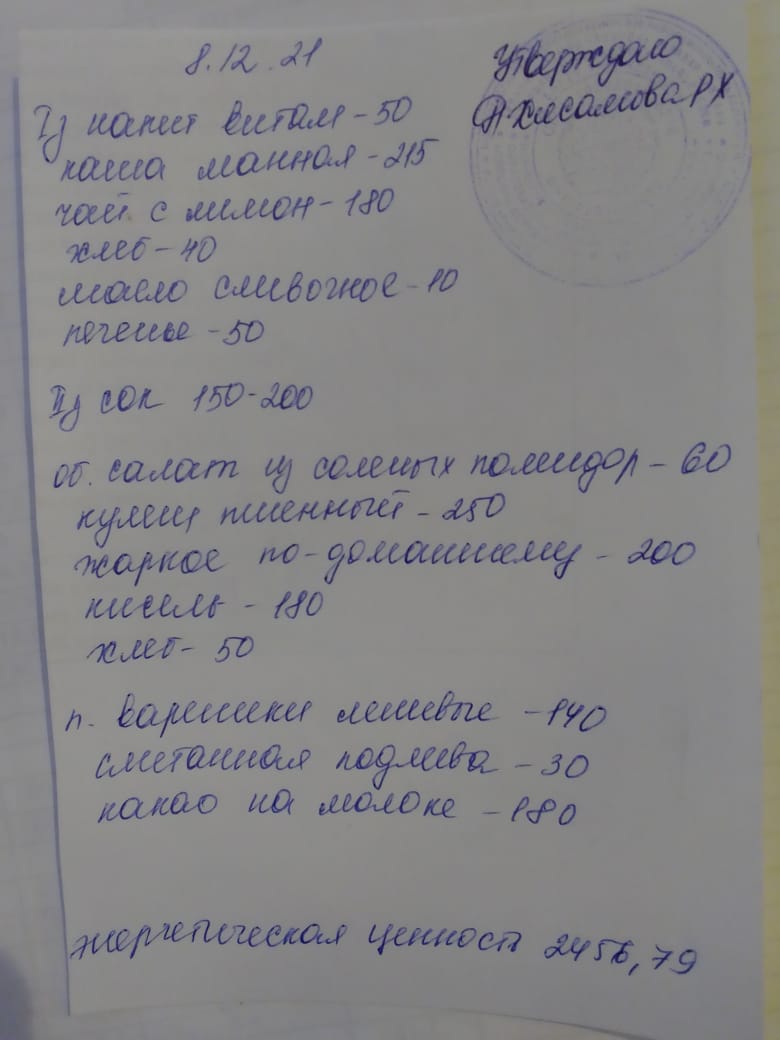 8.12.21
Утверждаю
Хисамова РХ
Iз напит витам - 50
каша манная - 215
чай с лимон - 180
хлеб - 40
масло сливочное - 10
печенье - 50
IIз сок 150-200
об. салат из соленых помидор - 60
кулеш пшенный - 250
жаркое по-домашнему - 200
кисель - 180
хлеб - 50
п. вареники ленивые - 140
сметанная подлива - 30
какао на молоке - 180
энергетическая ценность 2456,79